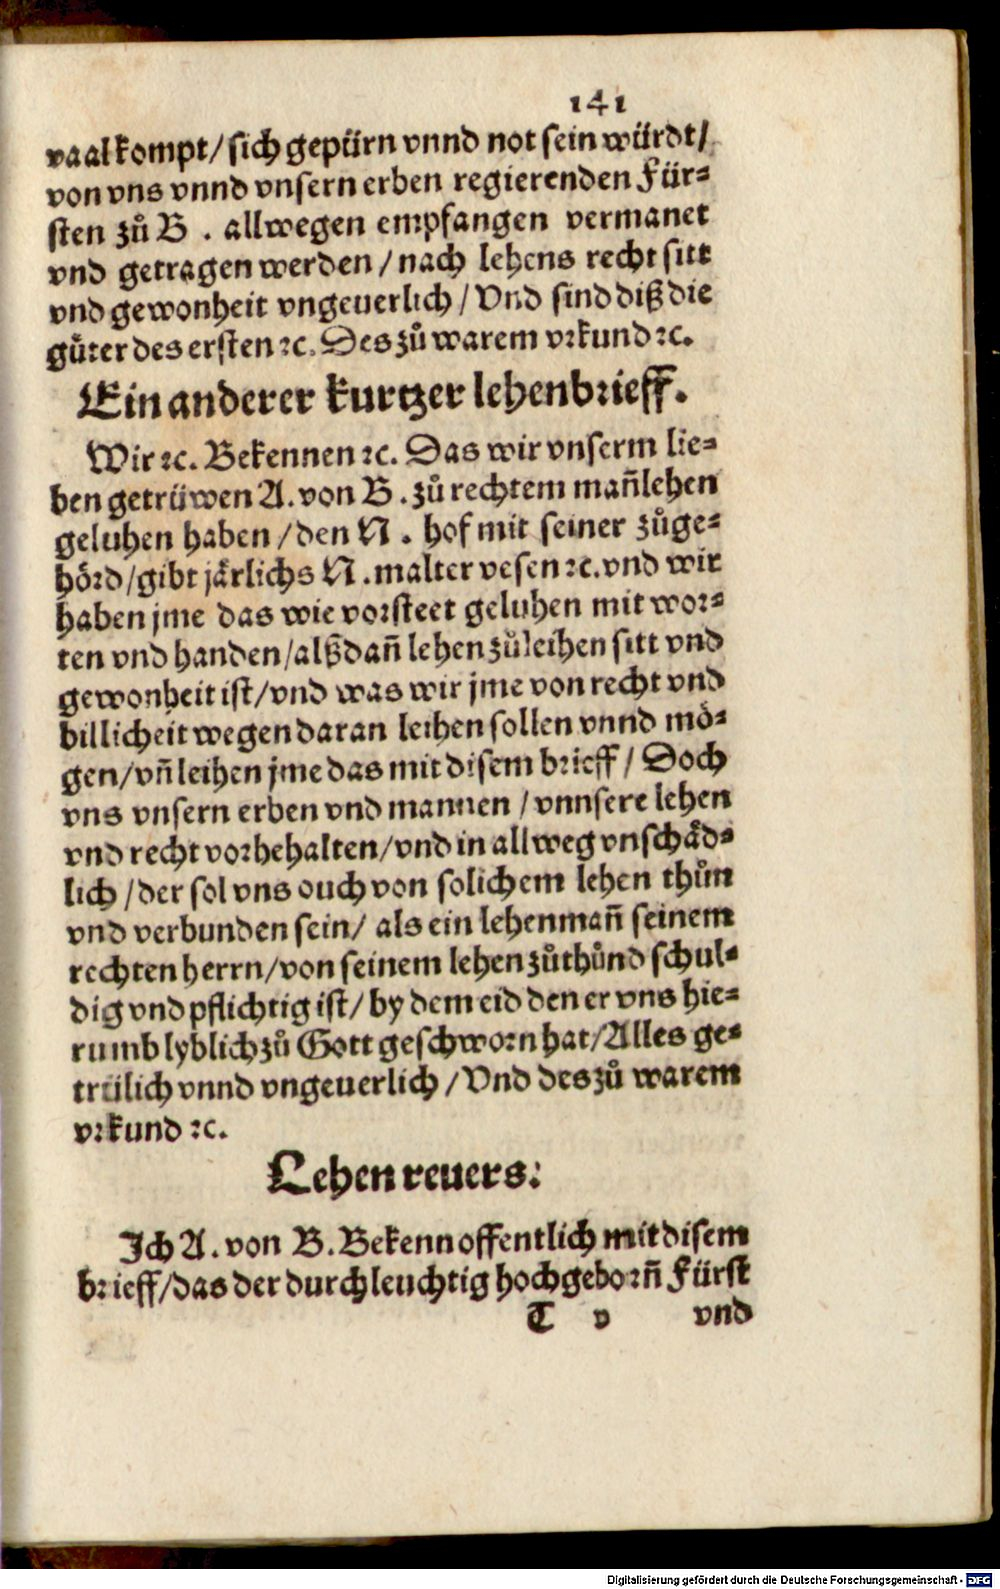 141
vaal kompt/ sich gepürn vnnd not sein würdt/
von vns vnnd vnsern erben regierenden Für⸗
sten zů B . allwegen empfangen vermanet
vnd getragen werden / nach lehens recht sitt
vnd gewonheit vngeuerlich / Vnd sind diß die
gůter des ersten ꝛc. Des zů warem vꝛkund ꝛc.
Ein anderer kurtzer lehenbꝛieff.
Wir ꝛc. Bekennen ꝛc. Das wir vnserm lie⸗
ben getrüwen A. von B . zů rechtem mañlehen
geluhen haben / den N . hof mit seiner zůge⸗
höꝛd / gibt järlichs N . malter vesen ꝛc. vnd wir
haben jme das wie voꝛsteet geluhen mit woꝛ⸗
ten vnd handen / alßdañ lehen zůleihen sitt vnd
gewonheit ist / vnd was wir jme von recht vnd
billicheit wegen daran leihen sollen vnnd mö⸗
gen / vñ leihen jme das mit disem bꝛieff / Doch
vns vnsern erben vnd mannen / vnnsere lehen
vnd recht voꝛbehalten / vnd in allweg vnschåd⸗
lich / der sol vns ouch von solichem lehen thůn
vnd verbunden sein / als ein lehenmañ seinem
rechten herrn / von seinem lehen zůthůnd schul⸗
dig vnd pflichtig ist / by dem eid den er vns hie⸗
rumb lyblich zů Gott geschwoꝛn hat / Alles ge⸗
trülich vnnd vngeuerlich / Vnd des zů warem
vꝛkund ꝛc.
Lehen reuers.
Ich A. von B. Bekenn offentlich mit disem
bꝛieff / das der durchleuchtig hochgeboꝛñ Fürst
T v vnd
Digitalisierung gefördert durch die Deutsche Forschungsgemeinschaft - DFG